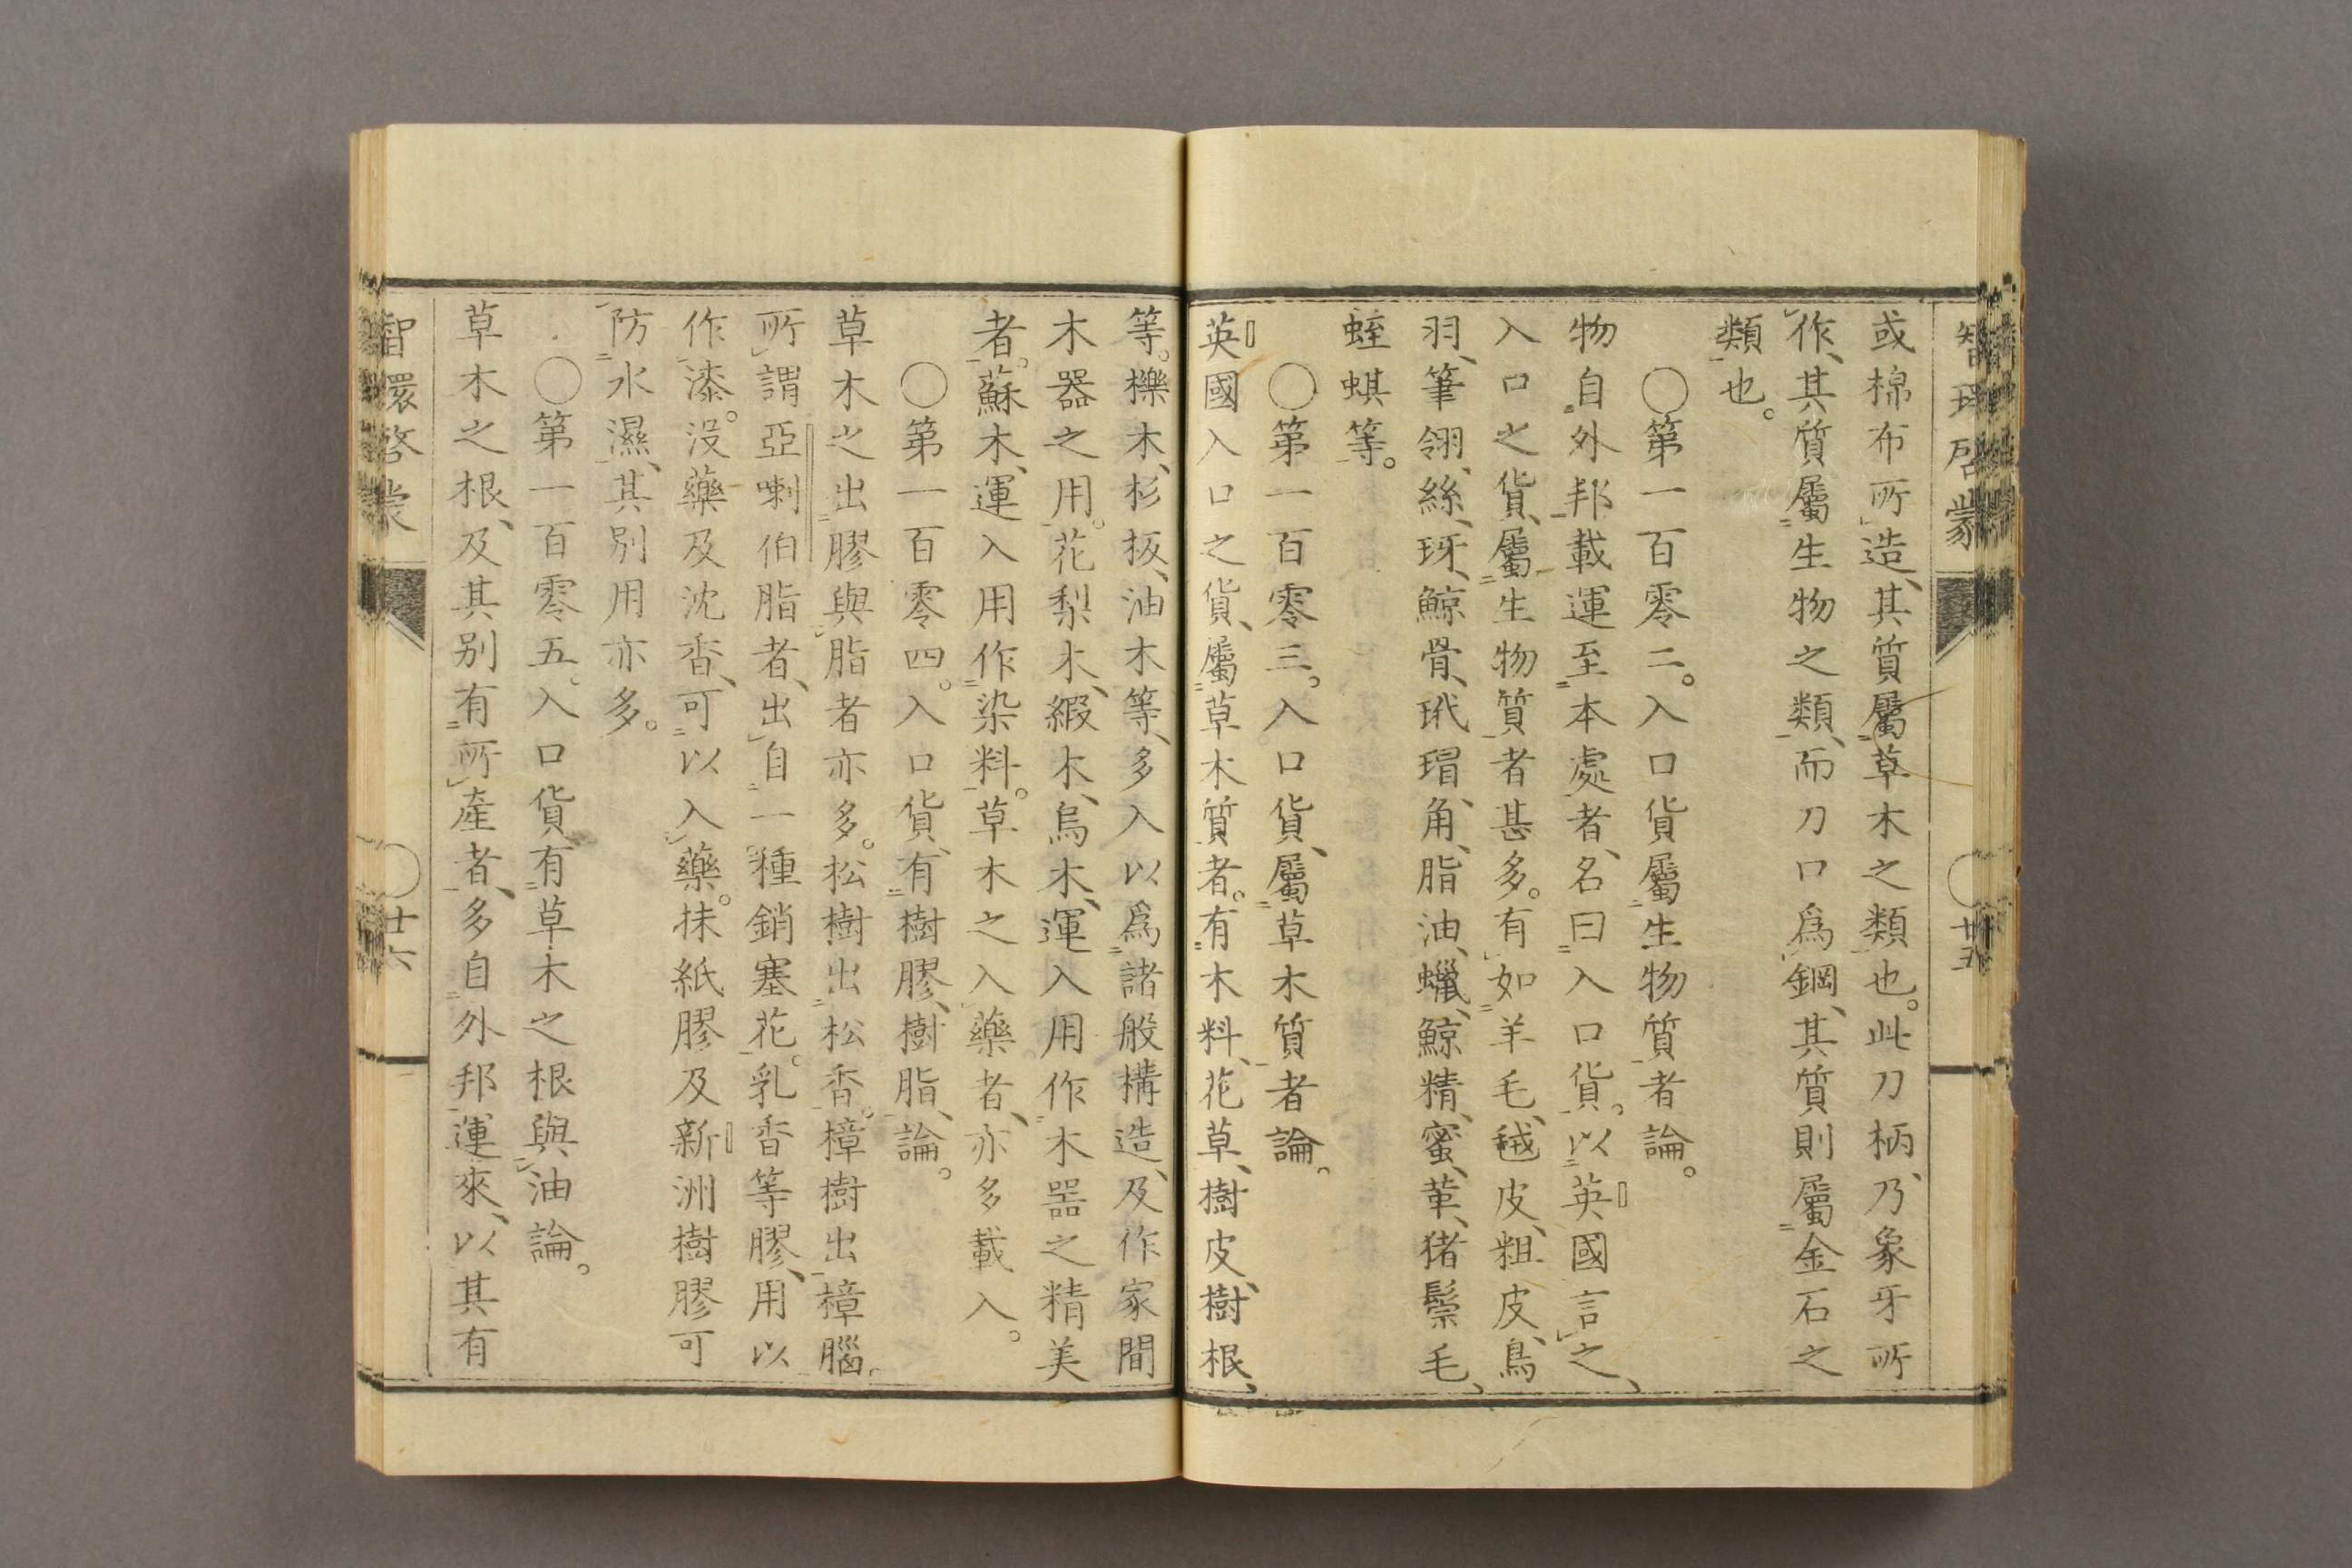 智環啓蒙 〇 廿五
或棉布所造、其質屬草木之類也。此刀柄、乃象牙所
作、其質屬生物之類、而刀口爲鋼、其質則屬金石之
類也。
〇第一百零二。入口貨屬生物質者論。
物自外邦載運至本處者、名曰入口貨。以英國言之、
入口之貨、屬生物質者甚多。有如羊毛、毧皮、粗皮、鳥
羽、筆翎、絲、玡、鯨骨、玳瑁、角、脂油、蠟、鯨精、蜜、革、猪鬃毛、
蛭蜞等。
〇第一百零三。入口貨、屬草木質者論。
英國入口之貨、屬草木質者。有木料、花草、樹皮、樹根、
等。櫟木、杉板、油木等、多入以爲諸般構造、及作家間
木器之用。花梨木、緞木、烏木、運入用作木器之精美
者。蘇木、運入用作染料。草木之入藥者、亦多載入。
〇第一百零四。入口貨、有樹膠、樹脂、論。
草木之出膠與脂者亦多。松樹出松香。樟樹出樟腦。
所謂亞喇伯脂者、出自一種銷塞花。乳香等膠、用以
作漆。沒藥及沈香、可以入藥。抹紙膠及新洲樹膠可
防水濕、其別用亦多。
〇第一百零五。入口貨、有草木之根與油論。
草木之根、及其别有所產者、多自外邦運來、以其有
智環啓蒙 〇 廿六